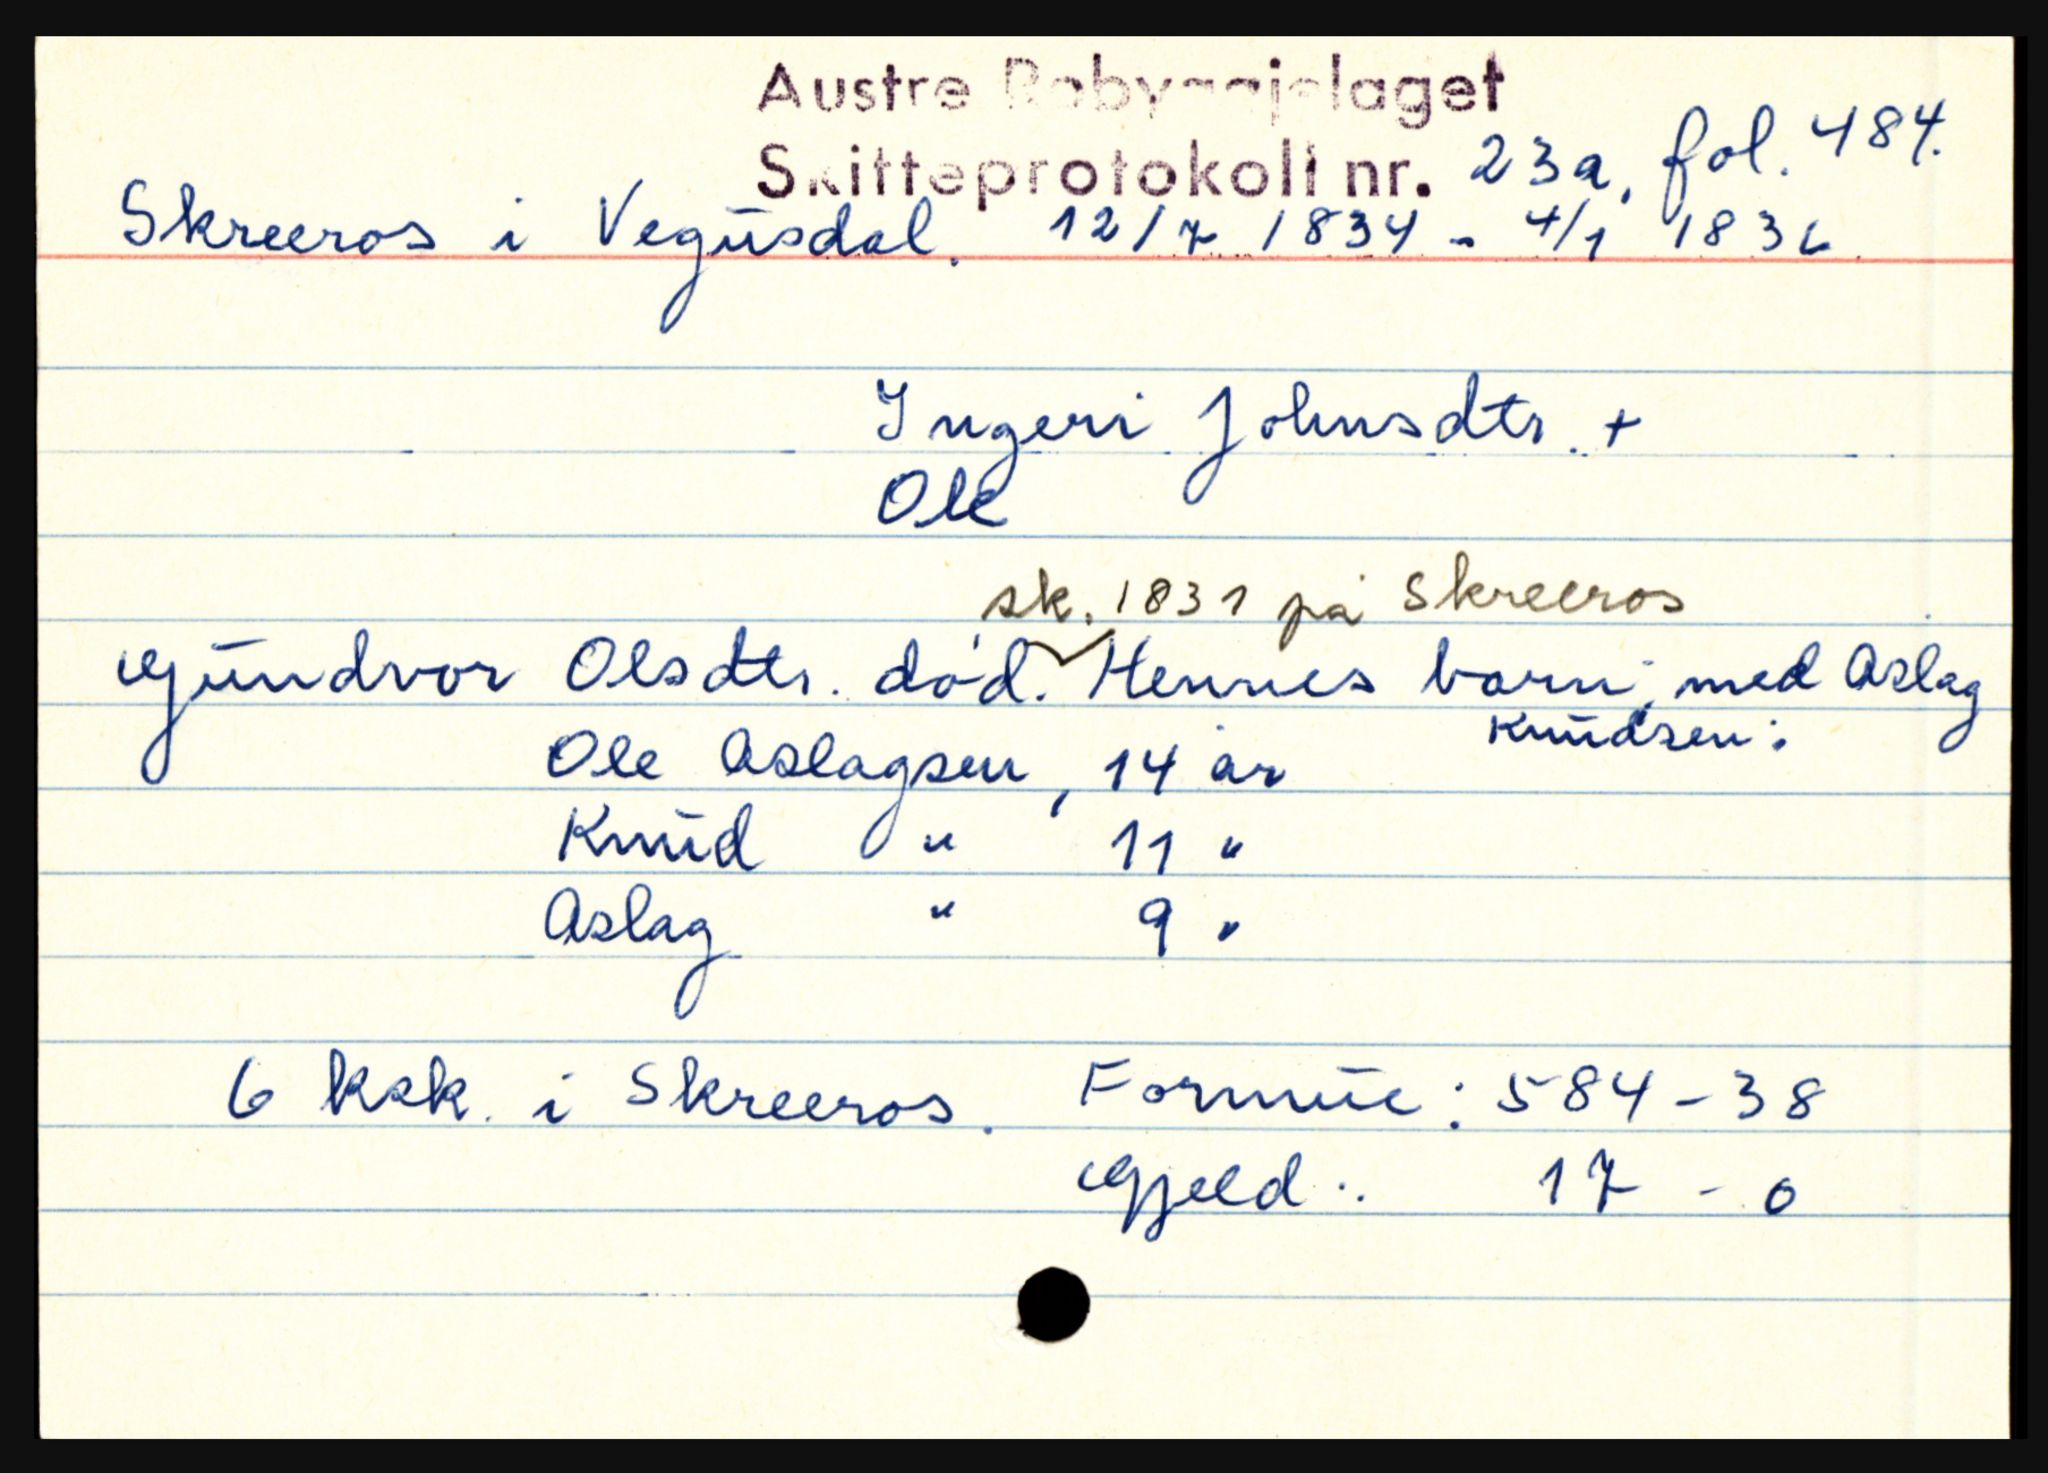 Austre Robyggjelaget
Skifteprotokoll nr. 23a, fol. 484.
Skreeros i Vegusdal. 12/7 1834 - 4/1 1836
Ingeri Johnsdtr. +
Ole
sk. 1831 på Skreeros
Gundvor Olsdtr. død. Hennes barn med Aslag
Knudsen:
Ole Aslagsen, 14 år
Knud " 11 "
Aslag " 9 "
6 ksk. i Skreeros. Formue: 584-38
Gjeld: 17 - 0